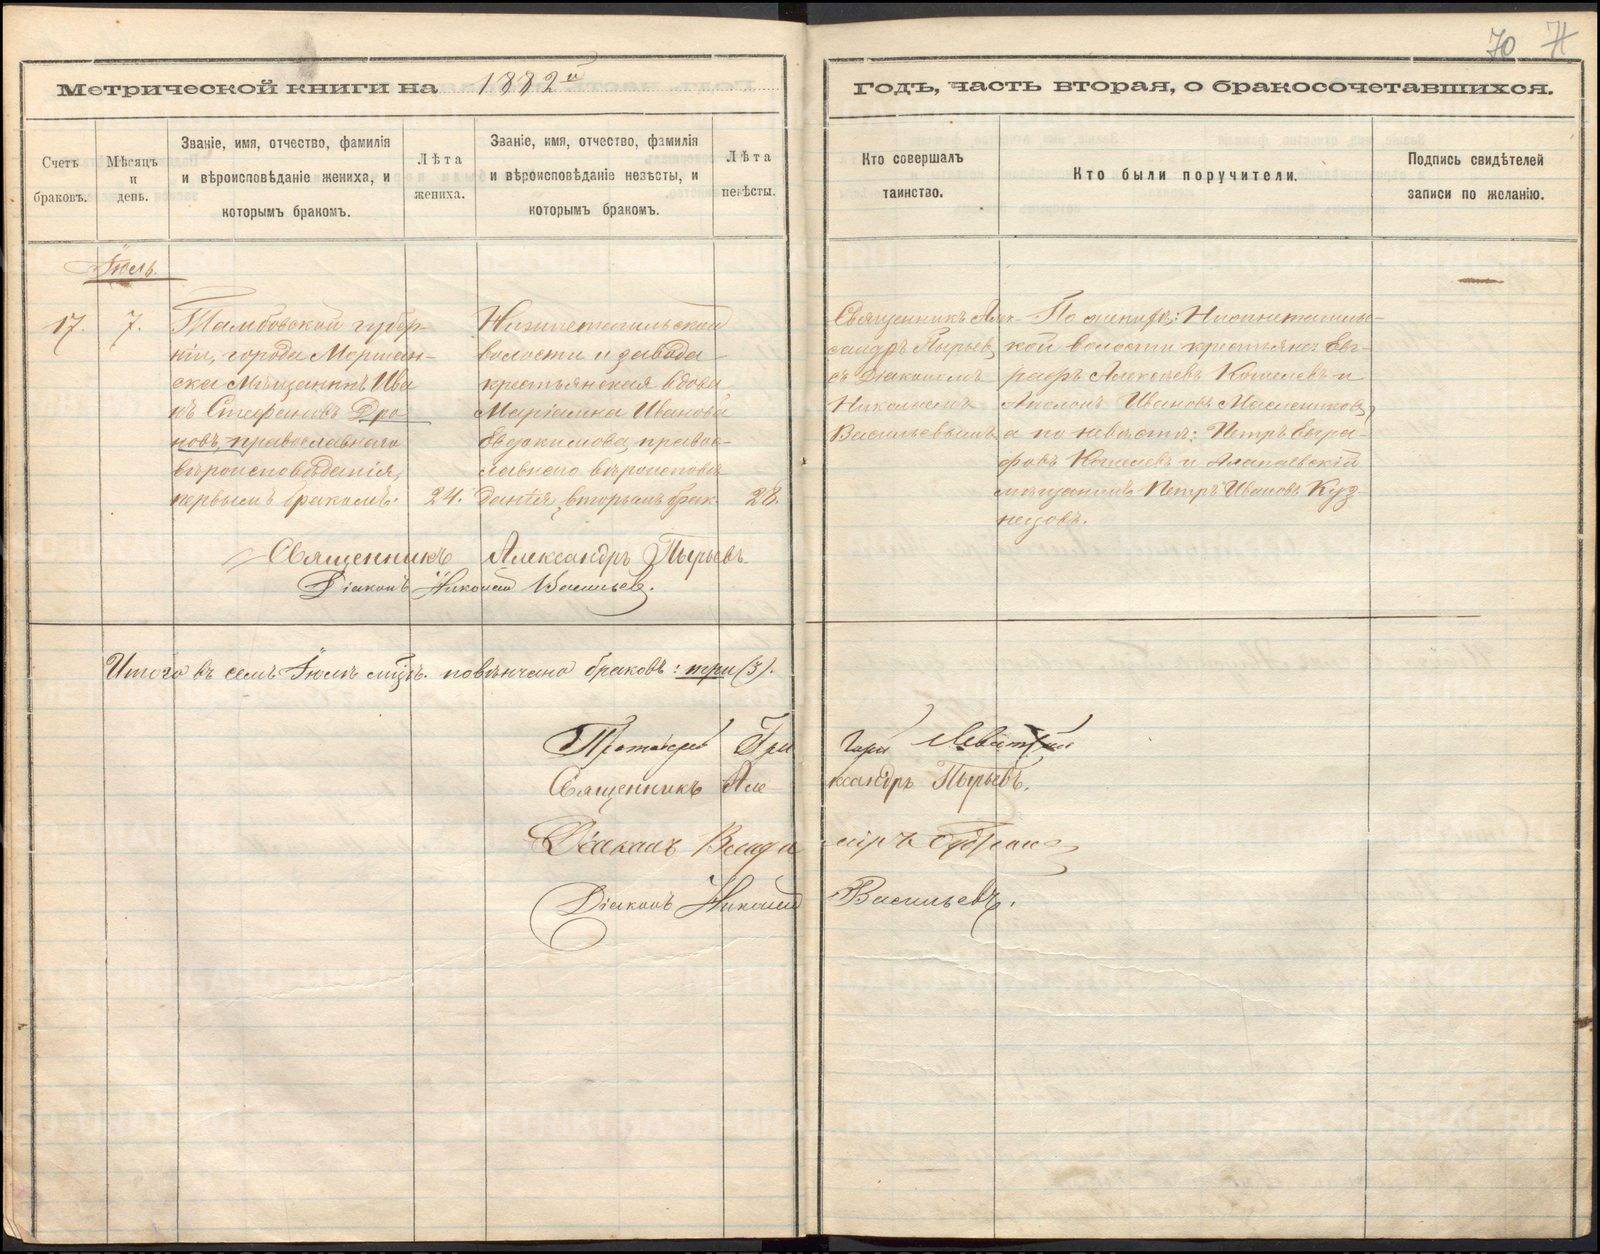 70 71
Метрической книги на 1882й
Годъ, часть вторая, о бракосочетавшихся.
Счетъ браковъ.
Мѣсяцъ и день.
Званіе, имя, отчество, фамилія
и вѣроисповѣданіе жениха, и
которымъ бракомъ.
Лѣта
жениха.
Званіе, имя, отчество, фамилія
и вѣроисповѣданіе невѣсты, и
которымъ бракомъ.
Лѣта
невѣсты.
Кто совершалъ
таинство.
Кто были поручители.
Подпись свидѣтелей
записи по желанію.
Іюль.
17.
7.
Тамбовской губер-
ніи, города Моршан-
ска Мѣщанинъ Ива
нъ Стефановъ Дро
новъ, православнаго
вѣроисповѣданія,
первымъ бракомъ.
24.
Нижнетагильской
волости и завода
крестьянская вдова
Маріамна Иванова
Евдокимова, правос-
лавнаго вѣроисповѣ
данія, вторымъ брак.
28.
Священникъ Алек-
сандръ Пырьев
съ Діакономъ
Николаемъ
Васильевымъ
По женихѣ: Нижнетагильс-
кой волости крестьяне: Евг-
рафъ Алексѣевъ Кошелевъ и
Аполонъ Ивановъ Масленников,
а по невѣстѣ: Петръ Евгра-
фовъ Кошелевъ и Алапаевскій
мѣщанинъ Петръ Ивановъ Куз-
нецовъ.
Священникъ Александръ Пырьевъ
Діаконъ Николай Васильевъ.
Итого въ семъ Іюлѣ мѣцѣ. повѣнчано браковъ: три (3).
Протоіерей Григорій Левитскій
Священникъ Александръ Пырьевъ.
Діаконъ Владиміръ
Діаконъ Николай Васильевъ.